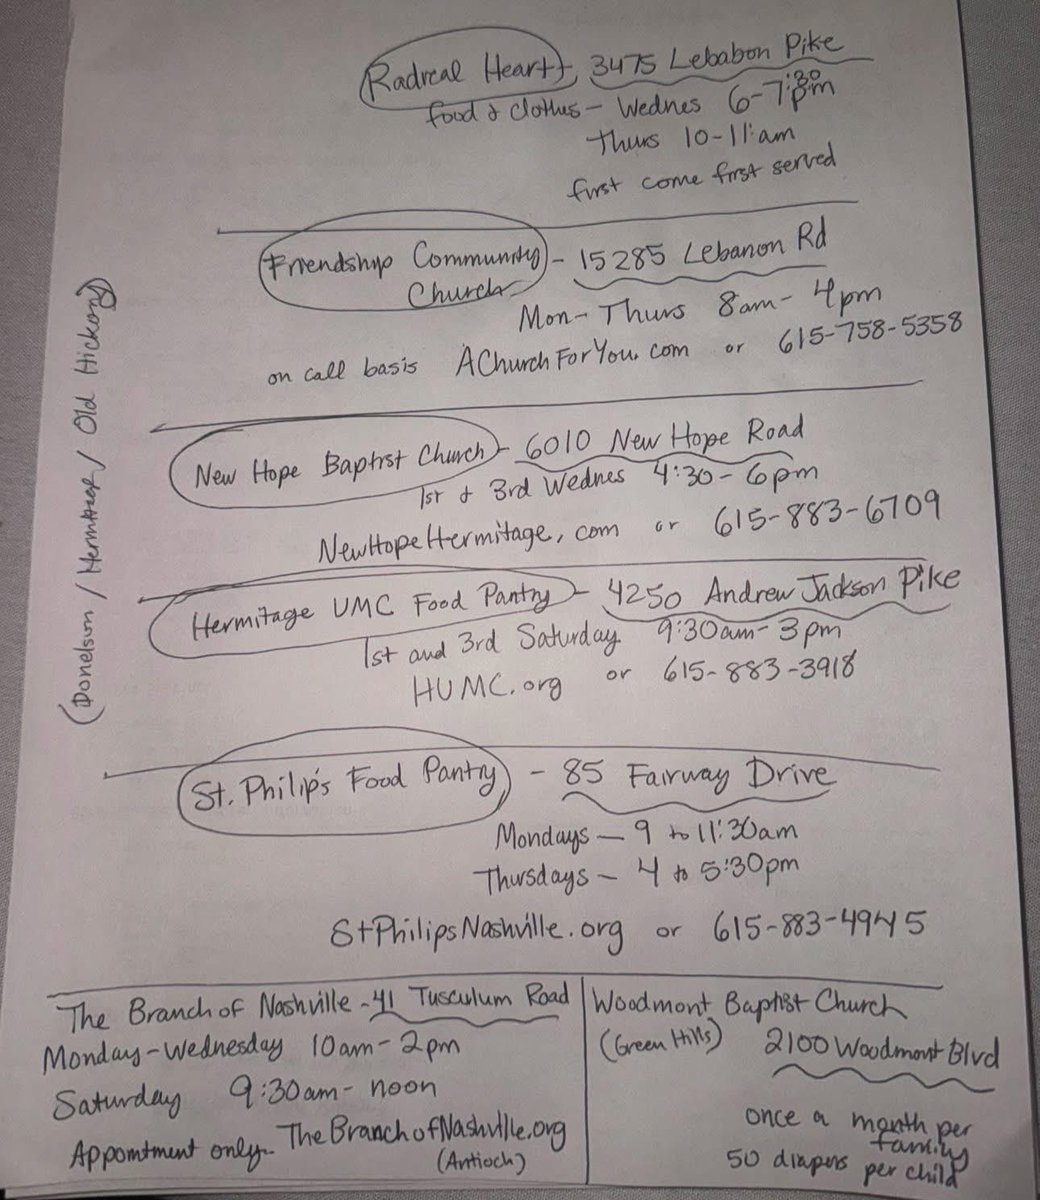 Radical Heart, 3475 Lebabon Pike
food & clothes - Wednes 6-7:30pm
Thurs 10-11:am
first come first served
Friendship Community Church - 15285 Lebanon Rd
Mon-Thurs 8am-4pm
on call basis AChurchForYou.com or 615-758-5358
New Hope Baptist Church - 6010 New Hope Road
1st & 3rd Wednes 4:30-6pm
NewHopeHermitage.com or 615-883-6709
Hermitage UMC Food Pantry - 4250 Andrew Jackson Pike
1st and 3rd Saturday 9:30am-3pm
HUMC.org or 615-883-3918
(Donelson/Hermitage/Old Hickory)
St. Philip's Food Pantry - 85 Fairway Drive
Mondays - 9 to 11:30am
Thursdays - 4 to 5:30pm
StPhilipsNashville.org or 615-883-4945
The Branch of Nashville - 41 Tusculum Road
Monday-Wednesday 10am-2pm
Saturday 9:30am-noon
Appointment only- TheBranchofNashville.org
(Antioch)
Woodmont Baptist Church
(Green Hills) 2100 Woodmont Blvd
once a month per family
50 diapers per child